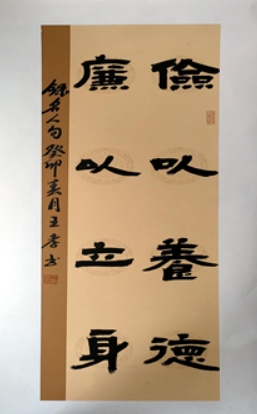 儉以養德
廉以立身
錄名人句癸卯春月王孝书